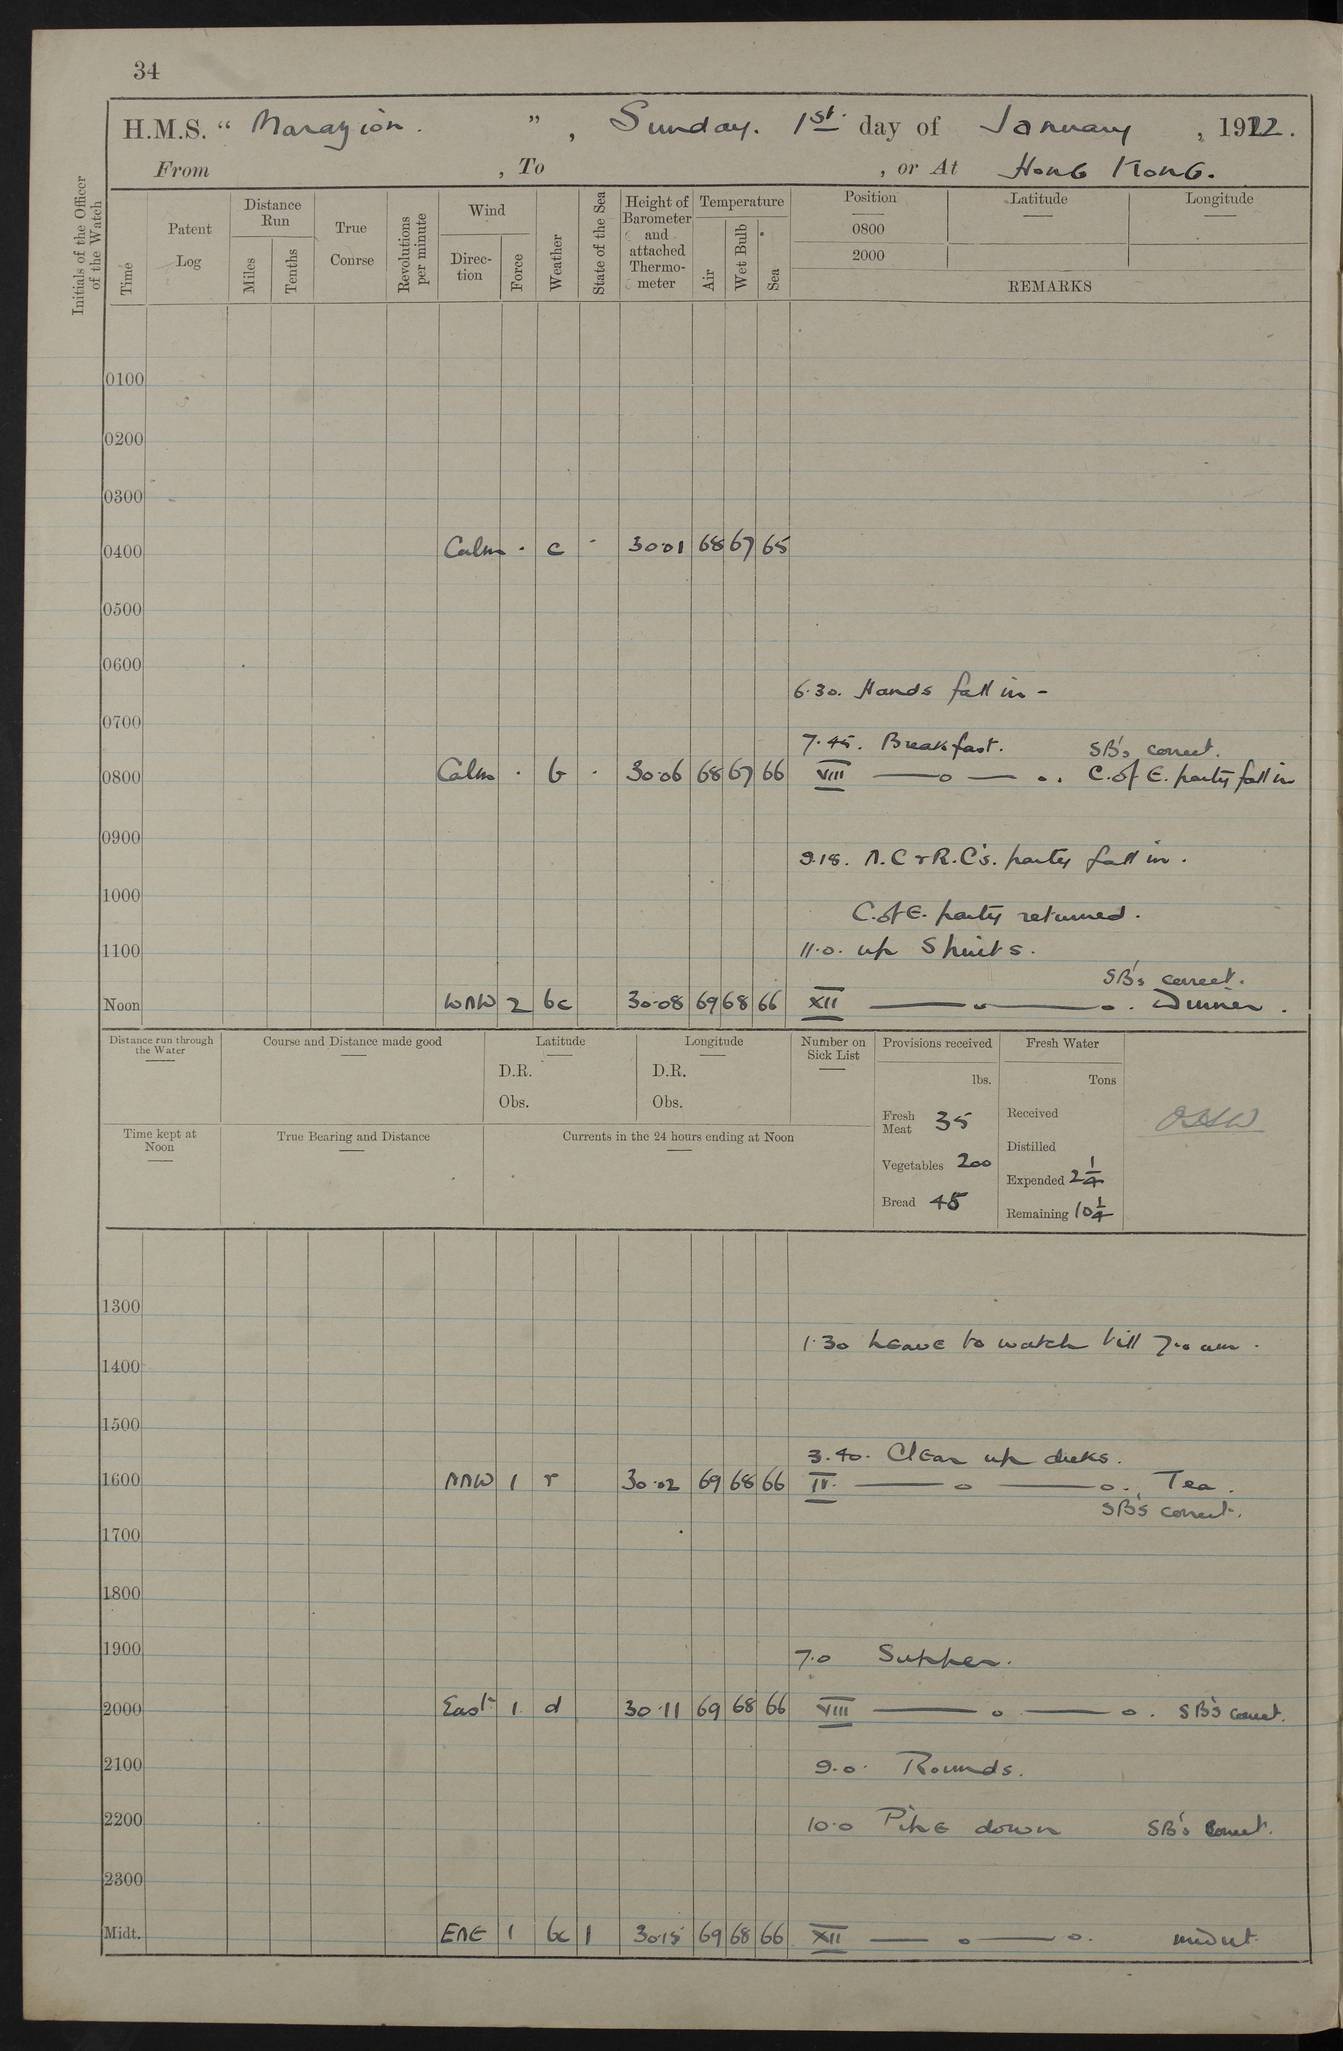 34
H.M.S. “ Marazion. ” , Sunday. 1st. day of January , 1922.
From , To , or At Hong Kong.
Initials of the Officer of the Watch
Time
Patent Log
Distance Run
Miles
Tenths
True Course
Revolutions per minute
Wind
Direction
Force
Weather
State of the Sea
Height of Barometer and attached Thermometer
Temperature
Air
Wet Bulb
Sea
Position Latitude Longitude
0800
2000
REMARKS
0100
0200
0300
0400 Calm . c - 30.01 68 67 65
0500
0600
6.30. Hands fall in -
0700
7.45. Breakfast. SB's correct.
0800 Calm . b . 30.06 68 67 66 VIII —o— o. C. of E. party fall in
0900
9.18. N.C & R.C's. party fall in.
1000
C. of E. party returned.
1100 11.0. up Spirits.
SB's correct.
Noon WNW 2 bc 30.08 69 68 66 XII —o—o. Dinner.
Distance run through the Water
Course and Distance made good
Latitude
D.R.
Obs.
Longitude
D.R.
Obs.
Number on Sick List
Provisions received
lbs.
Fresh Meat 35
Vegetables 200
Bread 45
Fresh Water
Tons
Received
Distilled
Expended 2 1/4
Remaining 10 1/4
Time kept at Noon
True Bearing and Distance
Currents in the 24 hours ending at Noon
1300
1.30 Leave to watch till 7.0 am.
1400
1500
3.40. Clear up decks.
1600 NNW 1 r 30.02 69 68 66 IV. —o—o. Tea.
SB's correct.
1700
1800
1900 7.0 Supper.
2000 East 1 d 30.11 69 68 66 VIII —o—o. SB's correct.
2100 9.0. Rounds.
2200 10.0 Pipe down SB's correct.
2300
Midt. ENE 1 bc 1 30.15 69 68 66 XII —o—o. midnt.